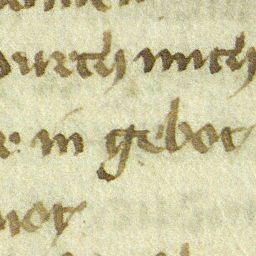 durch mich
r in gebot
not